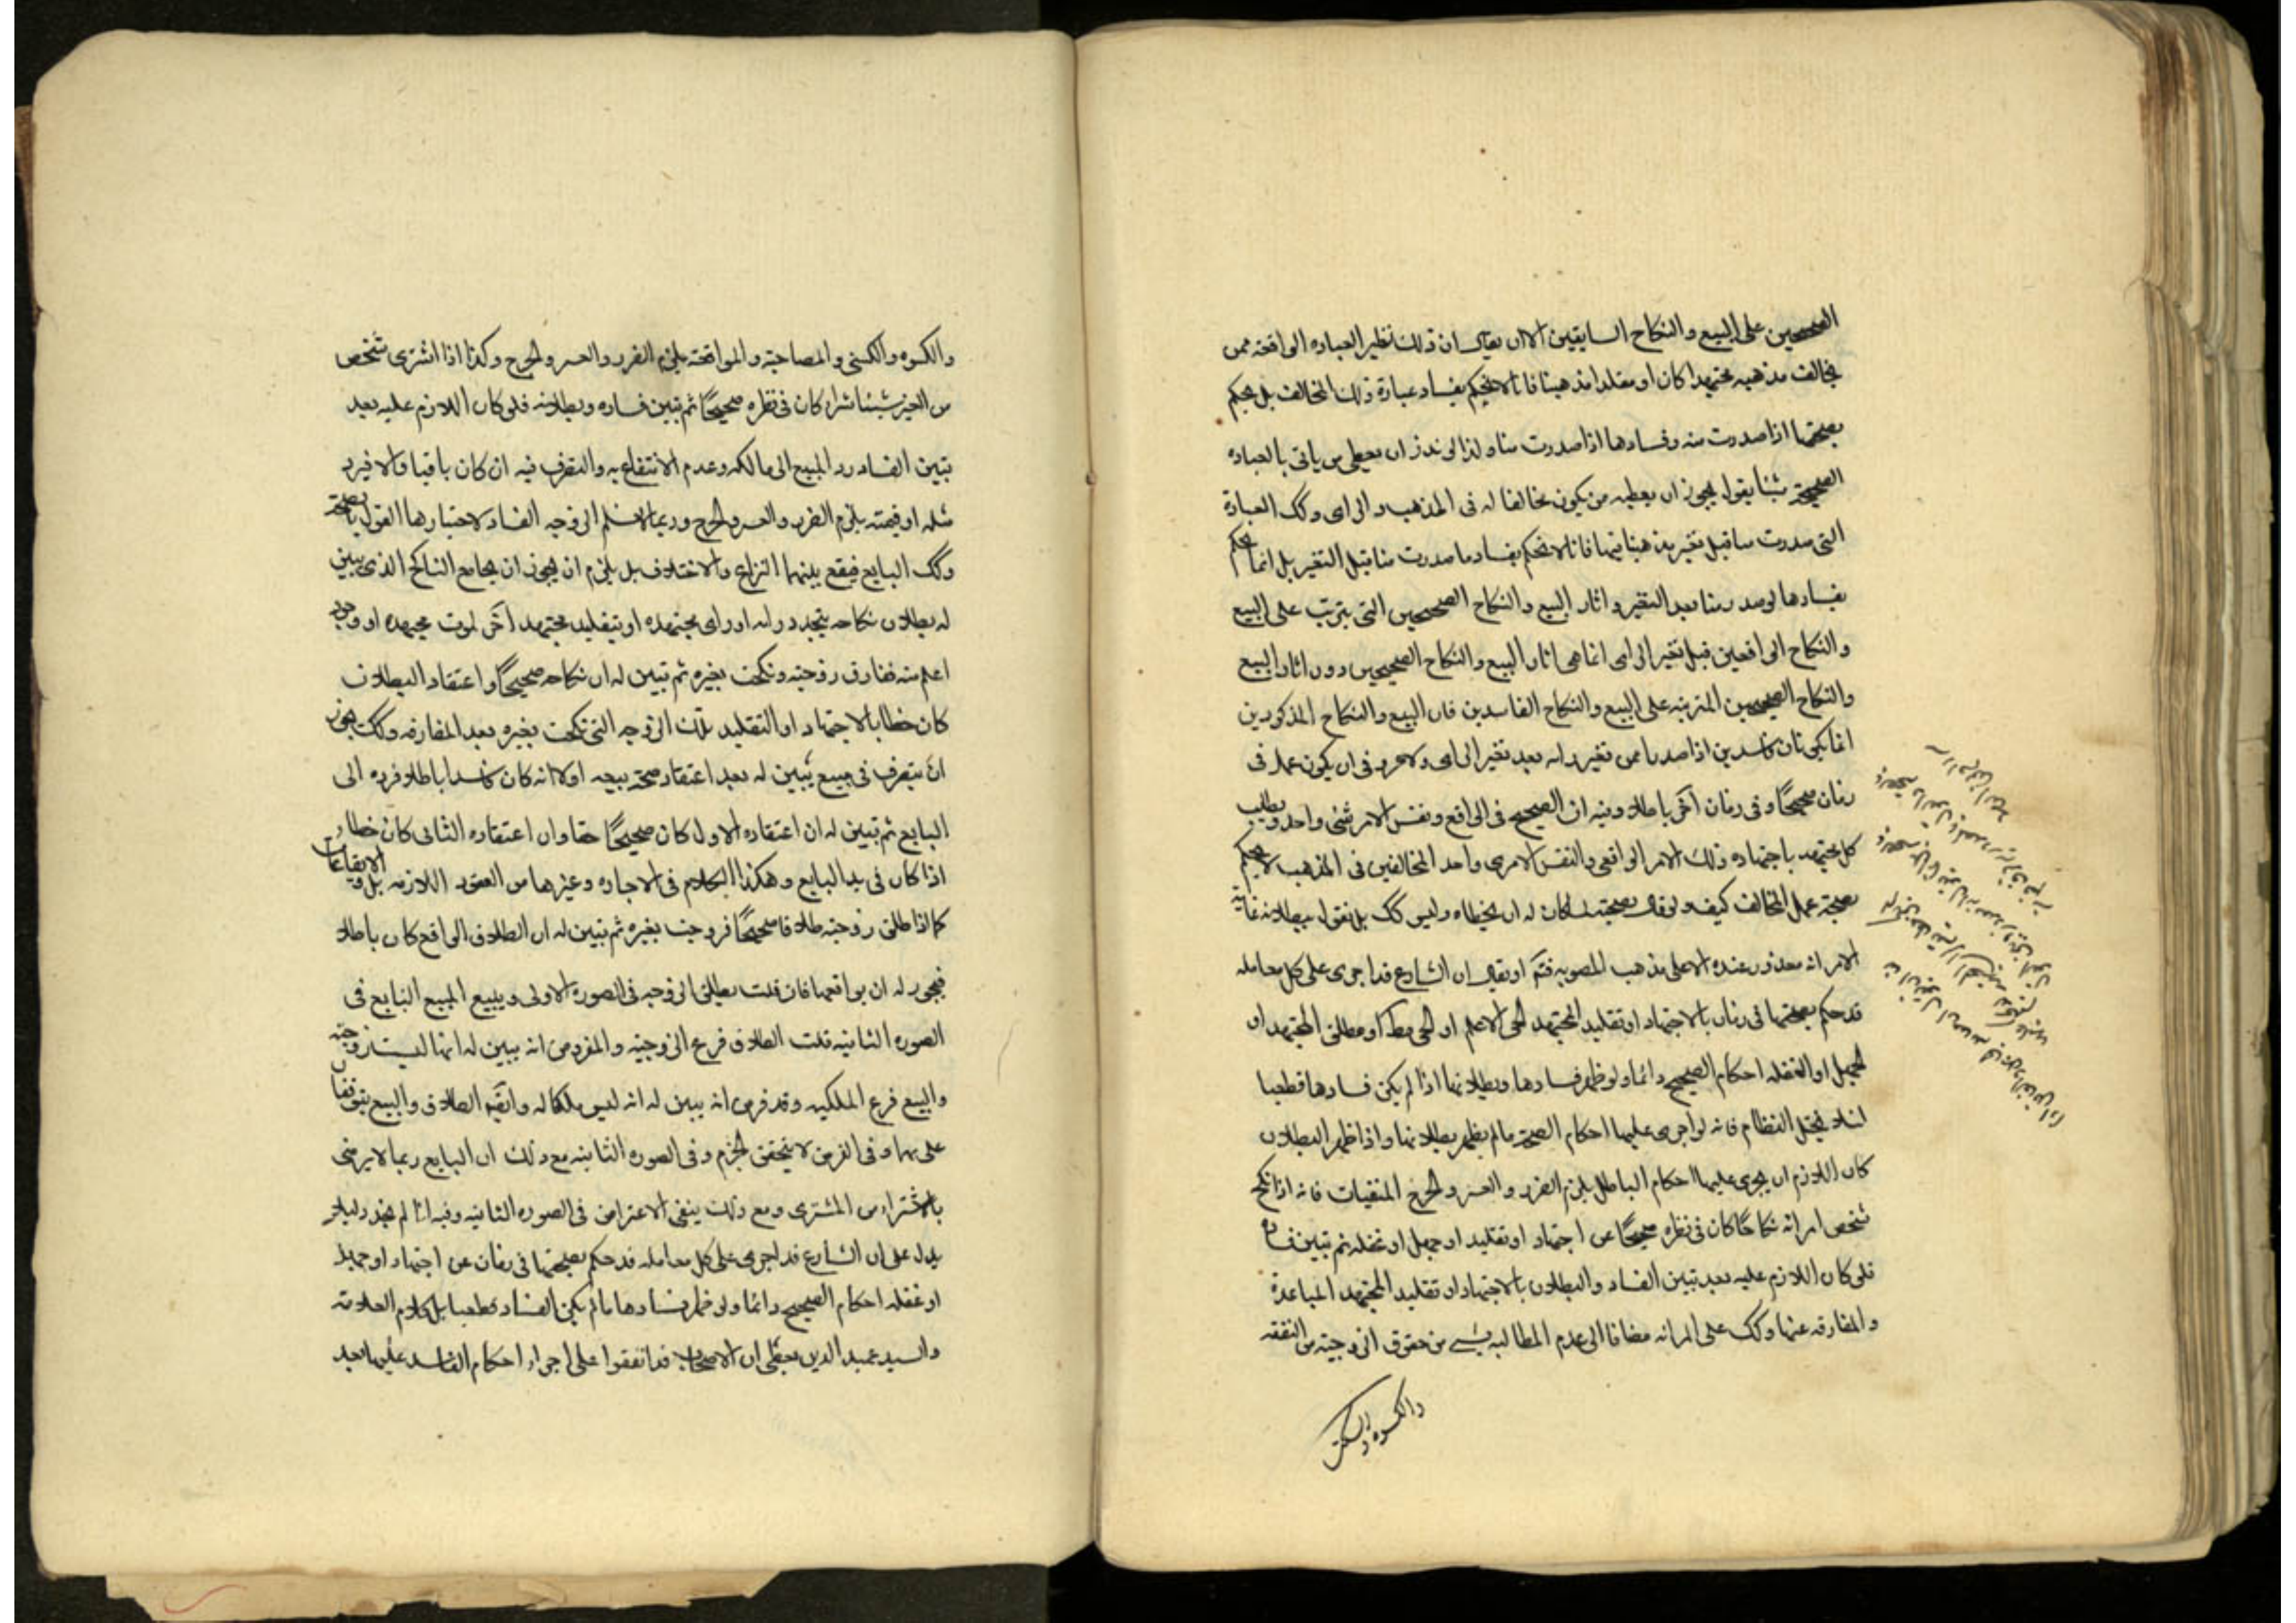 الصحيحين على البيع والنكاح السابقين الا ان يقال ان ذلك نظير العباده الواقعة ممن
يخالف مذهبه مجتهدا كان او مقلدا مذهبنا فانا لا نحكم بفساد عبادة ذلك المخالف بل يحكم
بصحتها اذا صدرت منه وفسادها اذا صدرت منا ولذا لو نذر ان يعطى من ياتى بالعباده
الصحيحة شيئا يقول يجوز ان يعطيه من يكون مخالفا له فى المذهب والراى وكك العبادة
التى صدرت منا قبل تغير مذهبنا فيها فانا لا نحكم بفساد ما صدرت منا قبل التغير بل انما نحكم
بفسادها لو صدر منا بعد التغير واثار البيع والنكاح الصحيحين التى يترتب على البيع
والنكاح الواقعين قبل تغير الراى انما هى اثار البيع والنكاح الصحيحين دون اثار البيع
والنكاح الصحيحين المترتبه على البيع والنكاح الفاسدين فان البيع والنكاح المذكورين
انما يكونان فاسدين اذا صدرا ممن تغير رايه بعد تغير الراى ولا غرو فى ان يكون عمل فى
زمان صحيحًا وفى زمان آخر باطلا وفيه ان الصحيح فى الواقع ونفس الامر شئ واحد ويطلب
كل مجتهد باجتهاده ذلك الامر الواقعى والنفس الامرى واحد المخالفين فى المذهب لا يحكم
بصحة عمل المخالف كيف ولو قال بصحته لما كان له ان يخطاه وليس كك بل نقول ببطلانه غاية
الامر انه معذور عنده الا على مذهب المصوبه فتم او يقال ان الشارع قد اجرى على كل معامله
قد حكم بصحتها فى زمان بالاجتهاد او تقليد المجتهد الحى الاعلم او الحى مط او مطلق المجتهد او
الجهل او الغفله احكام الصحيح دائما ولو ظهر فسادها وبطلانها اذا لم يكن فسادها قطعيا
لئلا يختل النظام فانه لو اجرى عليها احكام الصحة ما لم يظهر بطلانها واذا ظهر البطلان
كان اللازم ان يجرى عليها احكام الباطل يلزم الضرر والعسر والحرج المنفيات فانه اذا نكح
شخص امراته نكاحًا كان فى نظره صحيحًا عن اجتهاد او تقليد او جهل او غفله ثم تبين فساده
فلو كان اللازم عليه بعد تبين الفساد والبطلان بالاجتهاد او تقليد المجتهد المباعدة
والمفارقه عنها وكك على المراته مضافا الى عدم المطالبه بشئ من حقوق الزوجيته من النفقه
والكسوه والسكنى
والكسوه والسكنى والمصاحبة والمواقعة يلزم الضرر والعسر والحرج وكذا اذا اشترى شخص
من الغير شيئا شراء كان فى نظره صحيحًا ثم تبين فساده وبطلانه فلو كان اللازم عليه بعد
تبين الفساد رد المبيع الى مالكه وعدم الانتفاع به والتصرف فيه ان كان باقيا والا فيرد
مثله او قيمته يلزم الضرر والعسر والحرج وربما لا تسلم الزوجه الفساد لاختيارها القول بالصحة
وكك البايع فيقع بينهما النزاع والاختلاف بل يلزم ان يجوز ان يجامع الناكح الذى تبين
له بطلان نكاحه بتجدد رايه او راى مجتهده او بتقليد مجتهد آخر لموت مجتهده او وجود
اعلم منه ففارق زوجته ونكحت بغيره ثم تبين له ان نكاحه صحيحًا واعتقاد البطلان
كان خطا بالاجتهاد او التقليد تلك الزوجه التى نكحت بغيره بعد المفارقه وكك يجوز
ان يتصرف فى مبيع تبين له بعد اعتقاد صحة بيعه اولا انه كان فاسدا باطلا فرده الى
البايع ثم تبين له ان اعتقاده الاول كان صحيحًا حقا وان اعتقاده الثانى كان خطا و
اذا كان فى يد البايع وهكذا الكلام فى الاجاره وغيرها من العقود اللازمه بل والايقاعات
كما اذا طلق زوجته طلاقا صحيحًا فزوجت بغيره ثم تبين له ان الطلاق الواقع كان باطلا
فيجوز له ان يواقعها فان قلت يطلق الزوجه فى الصورة الاولى ويبيع المبيع البايع فى
الصوره الثانيه قلت الطلاق فرع الزوجيه والمفروض انه تبين له انها ليست زوجته
والبيع فرع الملكيه وقد فرض انه تبين له انه ليس ملكا له وايضا الطلاق والبيع يتوقفان
على وفى الفرض لا يتحقق الجزم وفى الصوره الثانيه مع ذلك ان البايع ربما لا يرضى
بالاشتراء من المشترى ومع ذلك ينفى الاعتراض فى الصوره الثانيه وفيه انا لم نجد دليلا
يدل على ان الشارع قد اجرى على كل معامله قد حكم بصحتها فى زمان عن اجتهاد او جهل
او غفله احكام الصحيح دائما ولو ظهر فسادها ما لم يكن الفساد قطعيا بل كلام العلامة
والسيد عميد الدين يعطى ان الاصحاب قد اتفقوا على اجراء احكام الفاسد عليها بعد